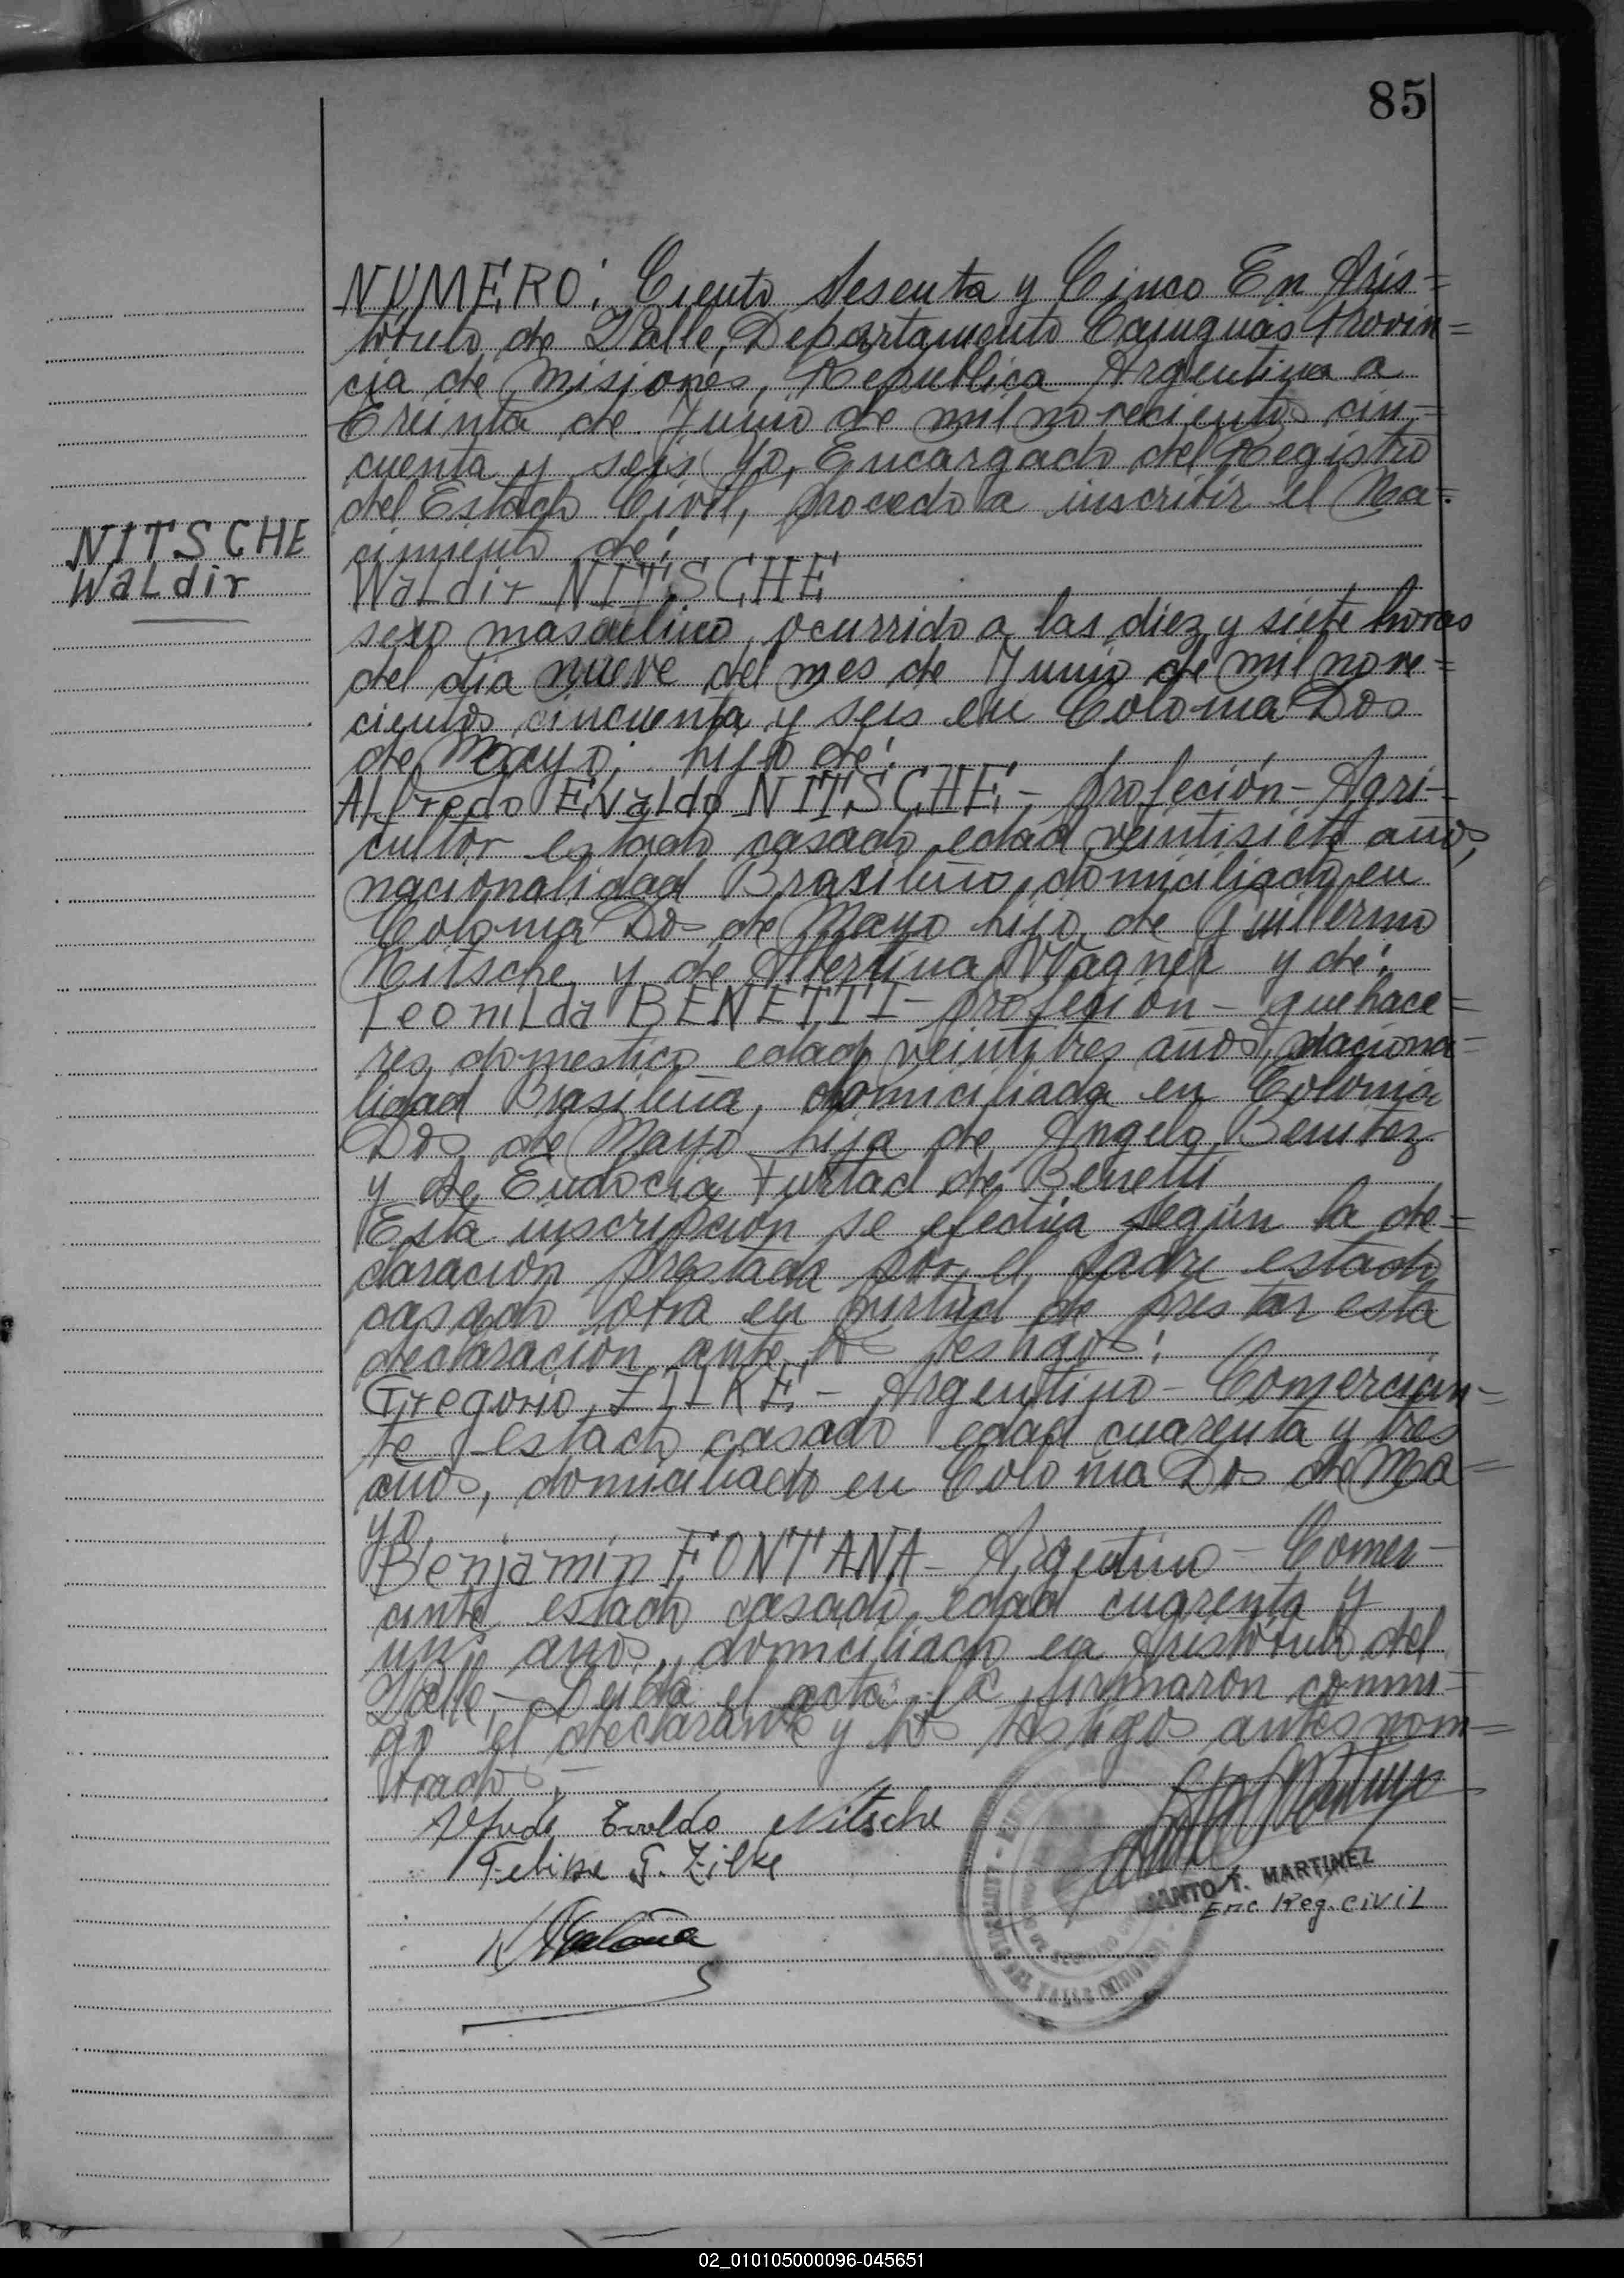 85
NUMERO: Ciento Sesenta y Cinco En Aris=
tobulo de Valle, Departamento Cainguas Provin=
cia de Misiones, Republica Argentina a
Treinta de Junio de mil novecientos cin=
cuenta y seis Yo, Encargado del Registro
del Estado Civil, procedo a inscribir el Na=
cimiento de:
NITSCHE
Waldir
Waldir NITSCHE
sexo masculino, ocurrido a las diez y siete horas
del dia nueve del mes de Junio de mil nove=
cientos cincuenta y seis en Colonia Dos
de Mayo; hijo de:
Alfredo Evaldo NITSCHE - profeción - Agri-
cultor estado casado edad veintisiete años,
nacionalidad Brasileño, domiciliado en
Colonia Dos de Mayo hijo de Guillermo
Nitsche y de Albertina Wagner y de:
Leonilda BENETTI - profesión - quehace=
res domestico edad veintitres años, naciona=
lidad Brasileña, domiciliada en Colonia
Dos de Mayo hija de Angelo Benitez
y de Eudocia Furtad de Benetti
Esta inscripción se efectúa según la de=
claración prestada por el padre estado
casado obra en virtud de prestar esta
declaración ante los testigos:
Gregorio ZILKE - Argentino - Comercian=
te estado casado edad cuarenta y tres
años, domiciliado en Colonia Dos de Ma=
yo
Benjamin FONTANA - Argentino - Comer-
ciante estado casado edad cuarenta y
uno años, domiciliado en Aristobulo del
Valle, - Leida el acta la firmaron conmi=
go el declarante y los testigos antes nom=
brados -
Alfredo Evaldo Nitsche
Felipe G. Zilke
SANTO T. MARTINEZ
Enc Reg. CiViL
02_010105000096-045651